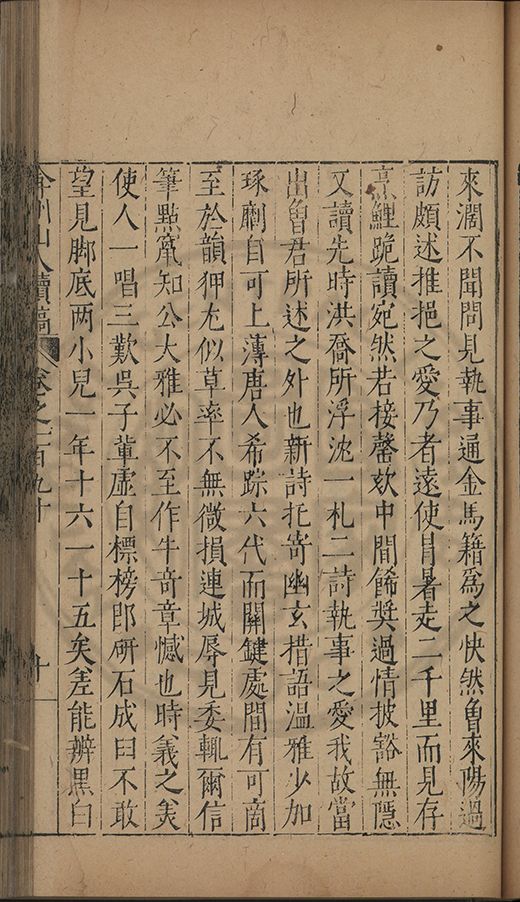 來濶不聞問見執事通金馬籍爲之快然魯來陽過
訪頗述推挹之愛乃者遠使冒暑走二千里而見存
烹鯉跪讀宛然若接馨欬中間餙奬過情披豁無隱
又讀先時洪喬所浮沈一札二詩執事之愛我故當
出魯君所述之外也新詩托寄幽玄措語溫雅少加
琢劘自可上薄唐人希踪六代而關鍵處間有可商
至於韻狎尤似草率不無微損連城辱見委輒爾信
筆點竄知公大雅必不至作牛奇章憾也時義之美
使人一唱三歎吳子輩虛自標榜卽硏石成臼不敢
望見脚底两小兒一年十六一十五矣差能辦黑白
弇州山人續稿 卷之一百九十 十